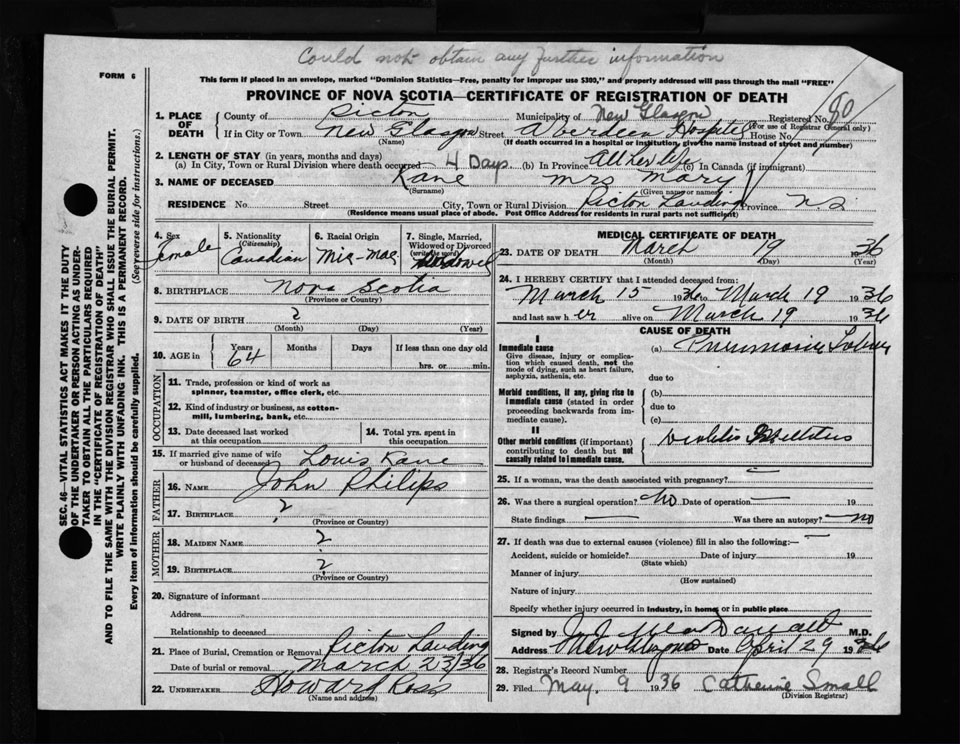 Could not obtain any further information
FORM 6
This form if placed in an envelope, marked "Dominion Statistics—Free, penalty for improper use $300," and properly addressed will pass through the mail "FREE"
PROVINCE OF NOVA SCOTIA—CERTIFICATE OF REGISTRATION OF DEATH
1. PLACE OF DEATH
County of Picton Municipality of New Glasgow Registered No. 80
(For use of Registrar General only)
If in City or Town New Glasgow Street Aberdeen Hospital House No.
(Name) (If death occurred in a hospital or institution, give the name instead of street and number)
2. LENGTH OF STAY (in years, months and days)
(a) In City, Town or Rural Division where death occurred 4 Days (b) In Province All her life (c) In Canada (if immigrant)
3. NAME OF DECEASED Kane Mrs Mary
(Surname) (Given name or names)
RESIDENCE No. Street City, Town or Rural Division Picton Landing Province N.S.
(Residence means usual place of abode. Post Office Address for residents in rural parts not sufficient)
4. Sex Female
5. Nationality (Citizenship) Canadian
6. Racial Origin Mic-Mac
7. Single, Married, Widowed or Divorced (write the word) Widowed
8. BIRTHPLACE Nova Scotia
(Province or Country)
9. DATE OF BIRTH ?
(Month) (Day) (Year)
10. AGE in Years 64 Months Days If less than one day old hrs. or min.
OCCUPATION
11. Trade, profession or kind of work as spinner, teamster, office clerk, etc.
12. Kind of industry or business, as cotton-mill, lumbering, bank, etc.
13. Date deceased last worked at this occupation
14. Total yrs. spent in this occupation
15. If married give name of wife or husband of deceased Louis Kane
FATHER
16. NAME John Philips
17. BIRTHPLACE ?
(Province or Country)
MOTHER
18. MAIDEN NAME ?
19. BIRTHPLACE ?
(Province or Country)
20. Signature of informant
Address
Relationship to deceased
21. Place of Burial, Cremation or Removal Picton Landing
Date of burial or removal March 23/36
22. UNDERTAKER Howard Ross
(Name and address)
MEDICAL CERTIFICATE OF DEATH
23. DATE OF DEATH March 19 1936
(Month) (Day) (Year)
24. I HEREBY CERTIFY that I attended deceased from:
March 15 1936 to March 19 1936
and last saw her alive on March 19 1936
CAUSE OF DEATH
I
Immediate cause
Give disease, injury or complication which caused death, not the mode of dying, such as heart failure, asphyxia, asthenia, etc.
(a) Pneumonia Lobar
due to
Morbid conditions, if any, giving rise to immediate cause (stated in order proceeding backwards from immediate cause).
(b)
due to
(c)
II
Other morbid conditions (if important) contributing to death but not causally related to immediate cause.
Mellitus
25. If a woman, was the death associated with pregnancy? —
26. Was there a surgical operation? No Date of operation — 19
State findings — Was there an autopsy? — no
27. If death was due to external causes (violence) fill in also the following:—
Accident, suicide or homicide? Date of injury 19
(State which)
Manner of injury
(How sustained)
Nature of injury
Specify whether injury occurred in industry, in home, or in public place
Signed by M.D.
Address New Glasgow Date April 29 1936
28. Registrar's Record Number
29. Filed May. 9 1936 Catherine Small
(Division Registrar)
SEC. 46—VITAL STATISTICS ACT MAKES IT THE DUTY
OF THE UNDERTAKER OR PERSON ACTING AS UNDER-
TAKER TO OBTAIN ALL THE PARTICULARS REQUIRED
IN THE "CERTIFICATE OF REGISTRATION OF DEATH"
AND TO FILE THE SAME WITH THE DIVISION REGISTRAR WHO SHALL ISSUE THE BURIAL PERMIT.
WRITE PLAINLY WITH UNFADING INK. THIS IS A PERMANENT RECORD.
Every item of information should be carefully supplied. (See reverse side for instructions.)